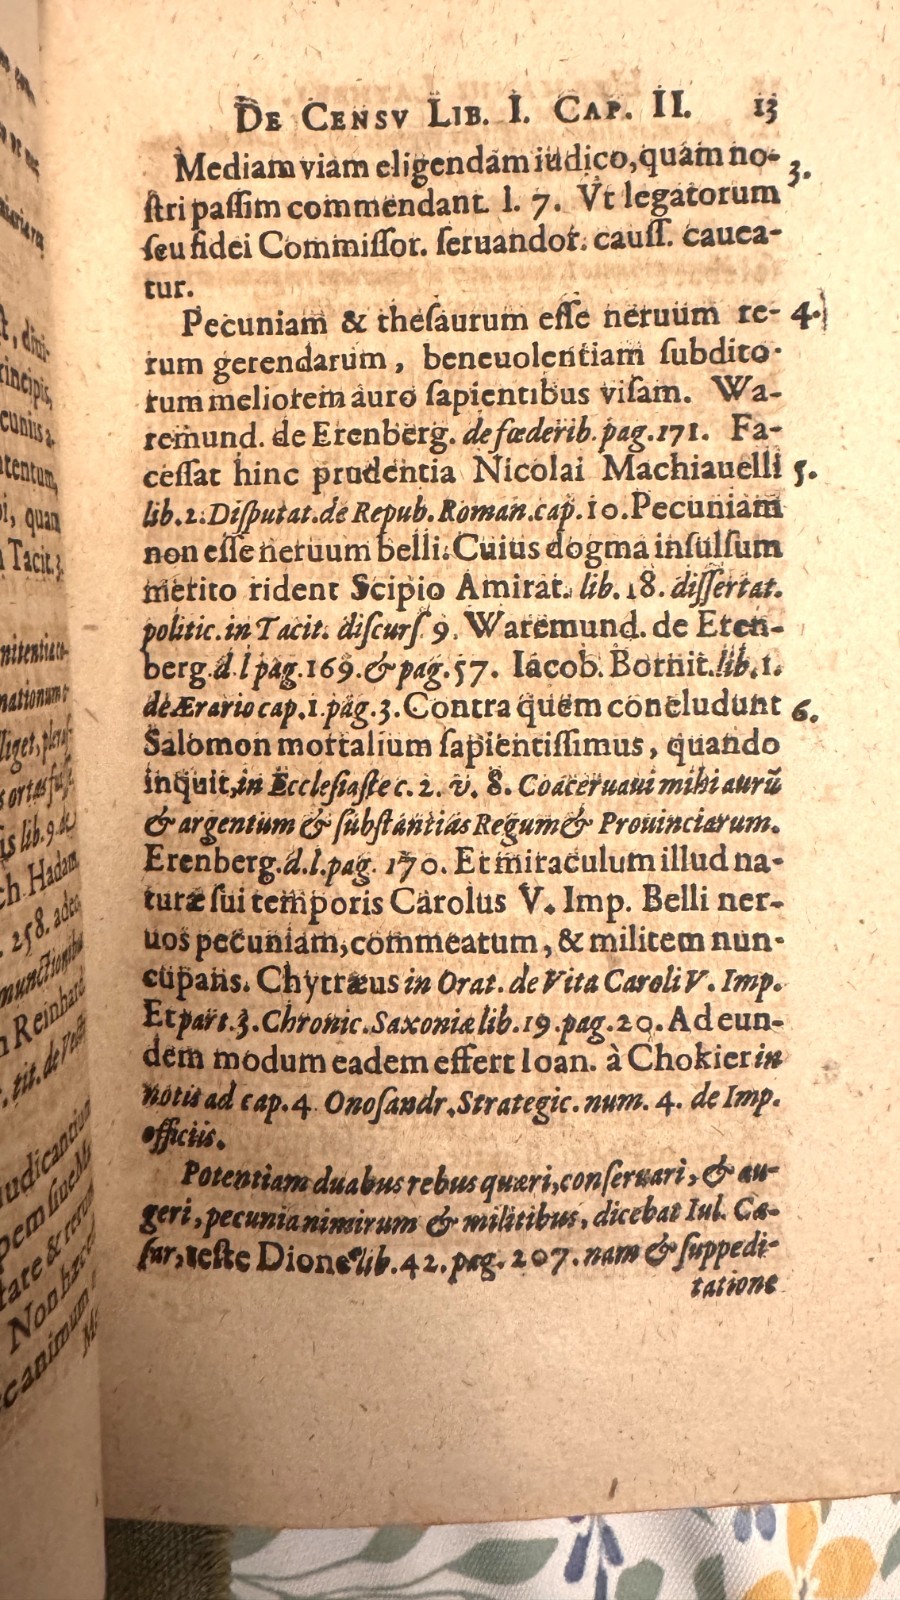 DE CENSV LIB. I. CAP. II. 13
Mediam viam eligendam iudico, quam no- 3.
ſtri paſſim commendant. l. 7. Vt legatorum
ſeu fidei Commiſſor. ſeruandor. cauſſ. cauea-
tur.
Pecuniam & theſaurum eſſe neruum re- 4.
rum gerendarum, beneuolentiam ſubdito-
rum meliorem auro ſapientibus viſam. Wa-
remund. de Erenberg. de fœderib. pag. 171. Fa-
ceſſat hinc prudentia Nicolai Machiauelli 5.
lib. 2. Diſputat. de Repub. Roman. cap. 10. Pecuniam
non eſſe neruum belli. Cuius dogma inſulſum
merito rident Scipio Amirat. lib. 18. diſſertat.
politic. in Tacit. diſcurſ 9. Waremund. de Eren-
berg. d. l pag. 169. & pag. 57. Iacob. Bornit. lib. 1.
de Ærario cap. 1. pag. 3. Contra quem concludunt 6.
Salomon mortalium ſapientiſſimus, quando
inquit, in Eccleſiaſte c. 2. v. 8. Coaceruaui mihi aurũ
& argentum & ſubſtantias Regum & Prouinciarum.
Erenberg. d. l. pag. 170. Et miraculum illud na-
turæ ſui temporis Carolus V. Imp. Belli ner-
uos pecuniam, commeatum, & militem nun-
cupans. Chytræus in Orat. de Vita Caroli V. Imp.
Et part. 3. Chronic. Saxoniæ lib. 19. pag. 20. Ad eun-
dem modum eadem effert Ioan. à Chokier in
notis ad cap. 4 Onoſandr. Strategic. num. 4. de Imp.
officiis.
Potentiam duabus rebus quæri, conſeruari, & au-
geri, pecunia nimirum & militibus, dicebat Iul. Cæ-
ſar, teſte Dione lib. 42. pag. 207. nam & ſuppedi-
tatione